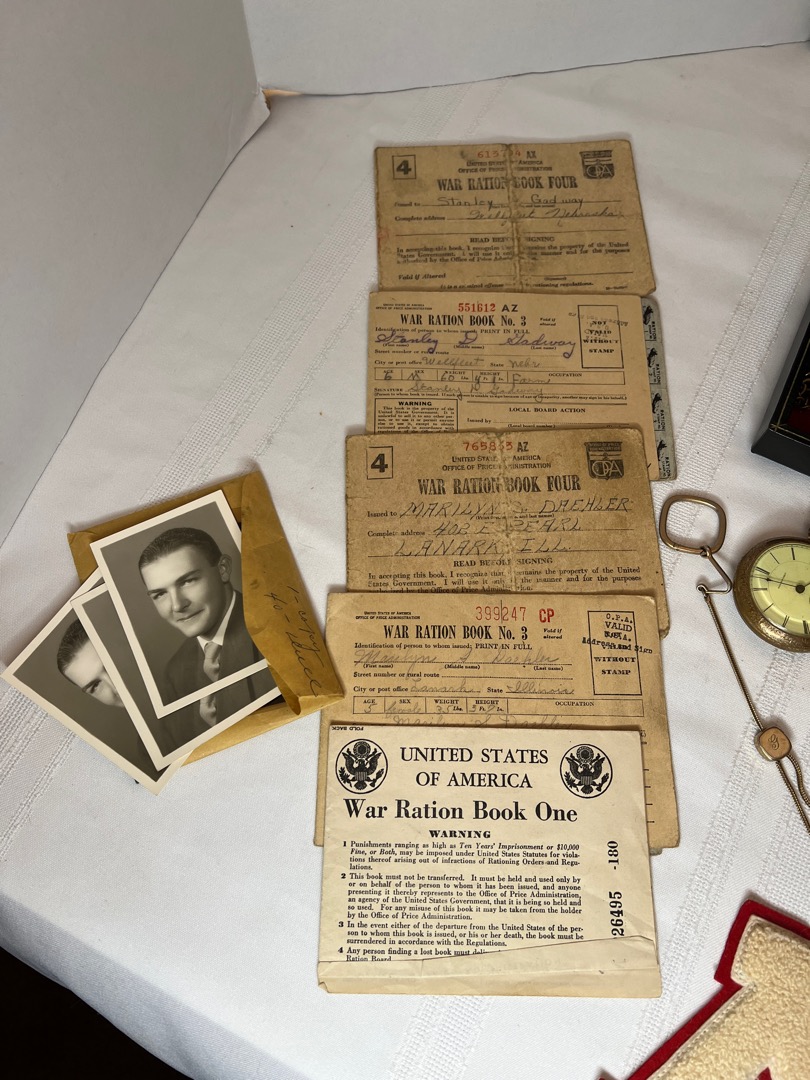 4
AX
UNITED STATES OF AMERICA
OFFICE OF PRICE ADMINISTRATION
WAR RATION BOOK FOUR
Issued to Stanley Gadway
Complete address Nebraska
READ BEFORE SIGNING
In accepting this book, I recognize that it remains the property of the United
States Government. I will use it only in the manner and for the purposes
authorized by the Office of Price Administration.
Void if Altered
It is a criminal offense to violate rationing regulations.
OPA
UNITED STATES OF AMERICA
OFFICE OF PRICE ADMINISTRATION
551612 AZ
WAR RATION BOOK No. 3
Void if altered
Identification of person to whom issued: PRINT IN FULL
Stanley D Gadway
(First name) (Middle name) (Last name)
Street number or rural route
City or post office Wellfleet State Nebr
AGE SEX WEIGHT HEIGHT OCCUPATION
6 M 60 Lbs. Farm
SIGNATURE Stanley D Gadway
WARNING
LOCAL BOARD ACTION
Issued by
(Local board number)
NOT
VALID
WITHOUT
STAMP
4
765863 AZ
UNITED STATES OF AMERICA
OFFICE OF PRICE ADMINISTRATION
WAR RATION BOOK FOUR
Issued to MARILYN J. DAEHLER
Complete address 402 E. PEARL
LANARK ILL.
READ BEFORE SIGNING
In accepting this book, I recognize that it remains the property of the United
States Government. I will use it only in the manner and for the purposes
OPA
UNITED STATES OF AMERICA
OFFICE OF PRICE ADMINISTRATION
399247 CP
WAR RATION BOOK No. 3
Void if altered
Identification of person to whom issued: PRINT IN FULL
Marilyn J Daehler
(First name) (Middle name) (Last name)
Street number or rural route
City or post office Lanark State Illinois
AGE SEX WEIGHT HEIGHT
5 female 35 Lbs.
O.P.A.
VALID
WITHOUT
STAMP
FOLD BACK
UNITED STATES
OF AMERICA
War Ration Book One
WARNING
1 Punishments ranging as high as Ten Years' Imprisonment or $10,000
Fine, or Both, may be imposed under United States Statutes for viola-
tions thereof arising out of infractions of Rationing Orders and Regu-
lations.
2 This book must not be transferred. It must be held and used only by
or on behalf of the person to whom it has been issued, and anyone
presenting it thereby represents to the Office of Price Administration,
an agency of the United States Government, that it is being so held and
so used. For any misuse of this book it may be taken from the holder
by the Office of Price Administration.
3 In the event either of the departure from the United States of the per-
son to whom this book is issued, or his or her death, the book must be
surrendered in accordance with the Regulations.
4 Any person finding a lost book must
Ration Board
26495 -180